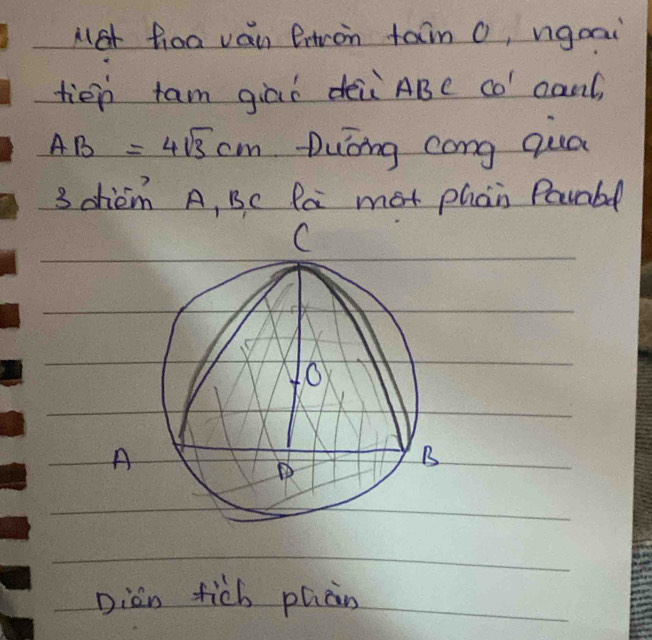 Một hoa văn hình tròn tâm O, ngoại
tiếp tam giác đều ABC có cạnh
AB = 4√3 cm Đường cong qua
3 điểm A, B, C là một phần Parabol
C
O
A
D
B
Diện tích phần